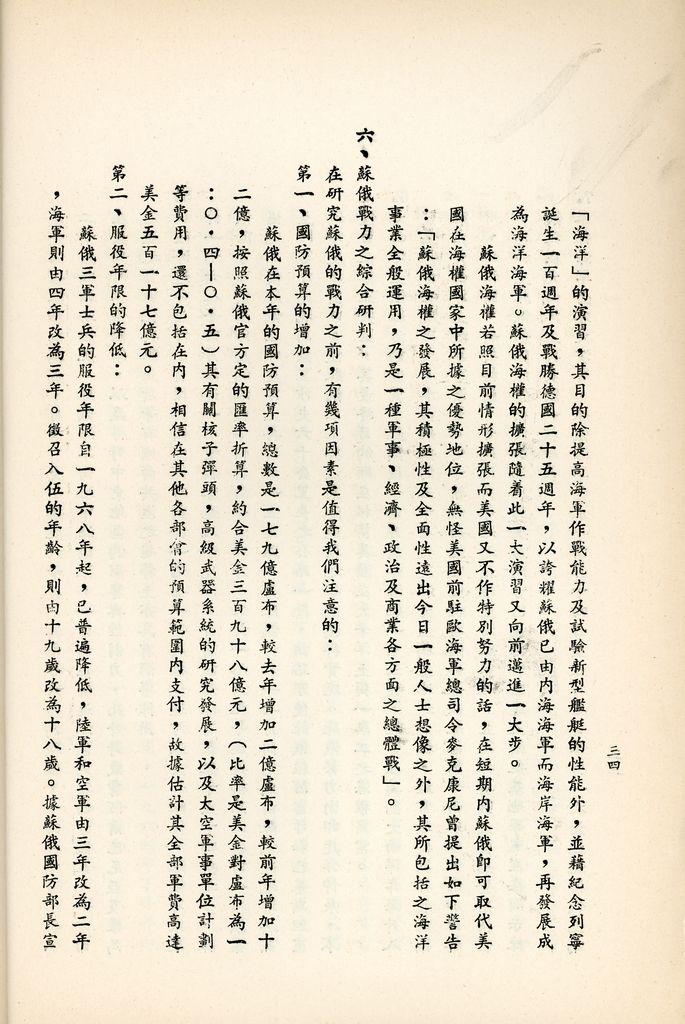 「海洋」的演習，其目的除提高海軍作戰能力及試驗新型艦艇的性能外，並藉紀念列寧
誕生一百週年及戰勝德國二十五週年，以誇耀蘇俄已由內海海軍而海岸海軍，再發展成
為海洋海軍。蘇俄海權的擴張隨着此一大演習又向前邁進一大步。
蘇俄海權若照目前情形擴張而美國又不作特別努力的話，在短期內蘇俄即可取代美
國在海權國家中所據之優勢地位，無怪美國前駐歐海軍總司令麥克康尼曾提出如下警告
：「蘇俄海權之發展，其積極性及全面性遠出今日一般人士想像之外，其所包括之海洋
事業全般運用，乃是一種軍事、經濟、政治及商業各方面之總體戰」。
六、蘇俄戰力之綜合研判：
在研究蘇俄的戰力之前，有幾項因素是值得我們注意的：
第一、國防預算的增加：
蘇俄在本年的國防預算，總數是一七九億盧布，較去年增加二億盧布，較前年增加十
二億，按照蘇俄官方定的匯率折算，約合美金三百九十八億元，（比率是美金對盧布為一
：〇・四—〇・五）其有關核子彈頭，高級武器系統的研究發展，以及太空軍事單位計劃
等費用，還不包括在內，相信在其他各部會的預算範圍內支付，故據估計其全部軍費高達
美金五百一十七億元。
第二、服役年限的降低：
蘇俄三軍士兵的服役年限自一九六八年起，已普遍降低，陸軍和空軍由三年改為二年
，海軍則由四年改為三年。徵召入伍的年齡，則由十九歲改為十八歲。據蘇俄國防部長宣
三四